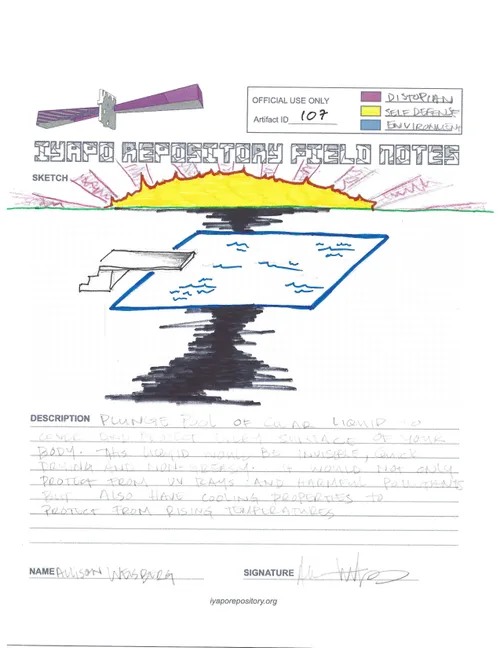 OFFICIAL USE ONLY
Artifact ID 107
DISTOPIAN
SELF DEFENSE
ENVIRONMENT
IYAPO REPOSITORY FIELD NOTES
SKETCH
DESCRIPTION PLUNGE POOL OF CLEAR LIQUID TO
COVER AND PROTECT EVERY SURFACE OF YOUR
BODY. THIS LIQUID WOULD BE INVISIBLE, QUICK
DRYING AND NON-GREASY. IT WOULD NOT ONLY
PROTECT FROM UV RAYS AND HARMFUL POLLUTANTS
BUT ALSO HAVE COOLING PROPERTIES TO
PROTECT FROM RISING TEMPERATURES
NAME ALLISON
SIGNATURE
iyaporepository.org